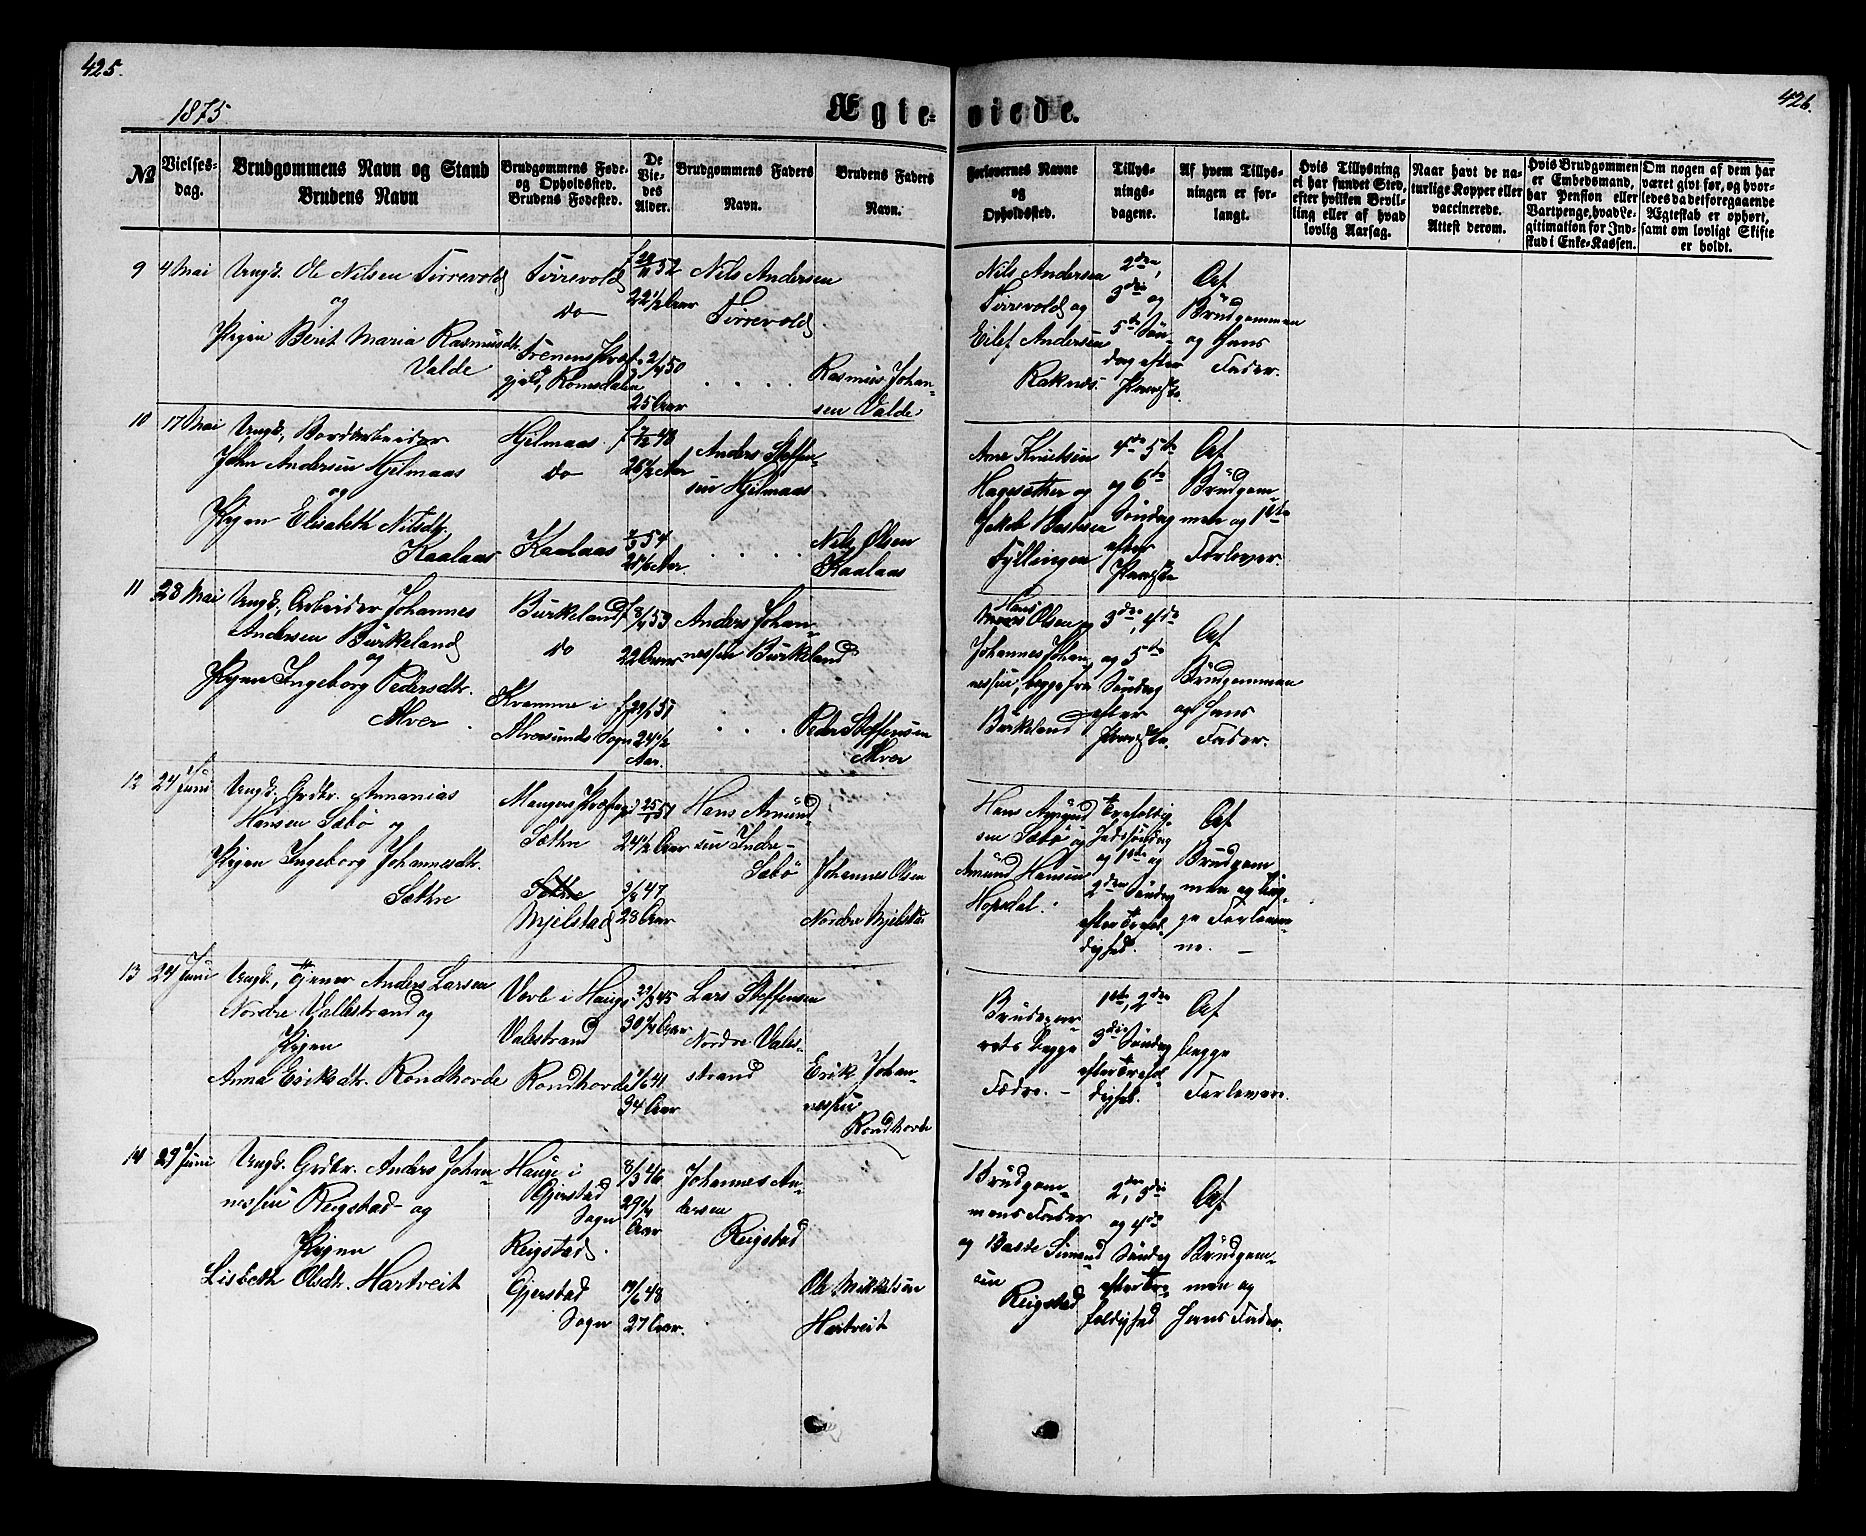 425.
426.
1875.
Ægte-
viede.
№
Vielses-
dag.
Brudgommens Navn og Stand
Brudens Navn
Brudgommens Føde-
og Opholdssted.
Brudens Fødested.
De
Vie-
des
Alder.
Brudgommens Faders
Navn.
Brudens Faders
Navn.
Forlovernes Navne
og
Opholdssted.
Tillys-
nings-
dagene.
Af hvem Tillys-
ningen er for-
langt.
Hvis Tillysning
ei har fundet Sted,
efter hvilken Bevil-
ling eller af hvad
lovlig Aarsag.
Naar havt de na-
turlige Kopper eller
vaccinerede.
Attest derom.
Hvis Brudgommen
er Embedsmand,
har Pension eller
Vartpenge, hvad Le-
gitimation for Ind-
skud i Enke-Kassen.
Om nogen af dem har
været gift før, og hvor-
ledes da det foregaaende
Ægteskab er ophørt,
samt om lovligt Skifte
er holdt.
9 4 Mai
Ungk. Ole Nilsen Tirrevold
og
Pigen Berit Maria Rasmusdtr.
Valde
Tirrevold
do
Romsdalen
f. 29/11 52
22 1/2 Aar
f. 2/4 50
25 Aar
Nils Andersen
Tirrevold
Rasmus Johan-
sen Valde
Nils Andersen
Tirrevold og
Eilef Andersen
Raknes.
2den,
3die og
5te Søn-
dag efter
Paaske.
Af
Brudgommen
og hans
Fader.
10 17 Mai
Ungk., Jordarbeider
John Andersen Hjelmaas
og
Pigen Elisabeth Nilsdtr.
Kaalaas
Hjelmaas.
do
Kaalaas
Anders Steffen-
sen Hjelmaas
Nils Olsen
Kaalaas
Arne Knutsen
Hagesæther og
Jakob
Fyllingen
4de 5te
og 6te
Søndag
efter
Paaske
Af
Brudgom-
men og 1ste
Forlover.
11 28 Mai
Ungk., Arbeider Johannes
Andersen Birkeland
og
Pigen Ingeborg Pedersdtr.
Alver
Birkeland
do
Kvamme i
Alversunds Sogn
22 Aar
24 1/2
Aar.
Anders Johan-
nessen Birkeland
Peder Steffensen
Alver
Hans
Olsen og
Johannes Johan-
nessen, begge fra
Birkeland
3die, 4de
og 5te
Søndag
efter
Paaske.
Af
Brudgommen
og hans
Fader.
12 24 Juni
Ungk. Grdbr. Ananias
Hansen Sæbø og
Pigen Ingeborg Johannesdtr.
Sæthre
Mangers Præstegj.
Sæthre
Sæthre
Mjelstad
25/1 51
24 1/2 Aar
47
28 Aar
Hans Amund-
sen Indre-
Sæbø
Johannes Olsen
Nordre Mjelstad
Hans Amund-
sen Sæbø og
Amund Hansen
Hopsdal.
Trefoldig-
hedssøndag
og 1ste og
2den Søndag
efter Trefol-
dighed.
Af
Brudgom-
men og beg-
ge Forlover-
ne.
13 24 Juni
Ungk., Tjener Anders Larsen
Nordre Vallestrand og
Pigen
Anna Eriksdtr. Rondhovde
i Haugs
Valestrand
Rondhovde
45
30 1/4 Aar
41
34 Aar
Lars Steffensen
Nordre Vales-
strand
Erik Johan-
nessen
Rondhovde
Brudepar-
rets begge
Fædre.
1ste, 2den
3die Søndag
efter Trefol-
dighed.
Af
begge
Forlovere.
14 29 Juni
Ungk. Grdbr. Anders Johan-
nessen Reigstad og
Pigen
Lisbeth Olsdtr. Hartveit
Hauge i
Gjerstad
Sogn
Reigstad.
Gjerstad
Sogn
8/3 46
29 1/4
Aar
48
27 Aar.
Johannes An-
dersen
Reigstad
Ole Mikkelsen
Hartveit
Brudgom-
mens Fader
og Baste Simond
sen
Reigstad
2den, 3die
og 4de
Søndag
efter Tre-
foldighed
Af
Brudgom-
men og
hans Fader.